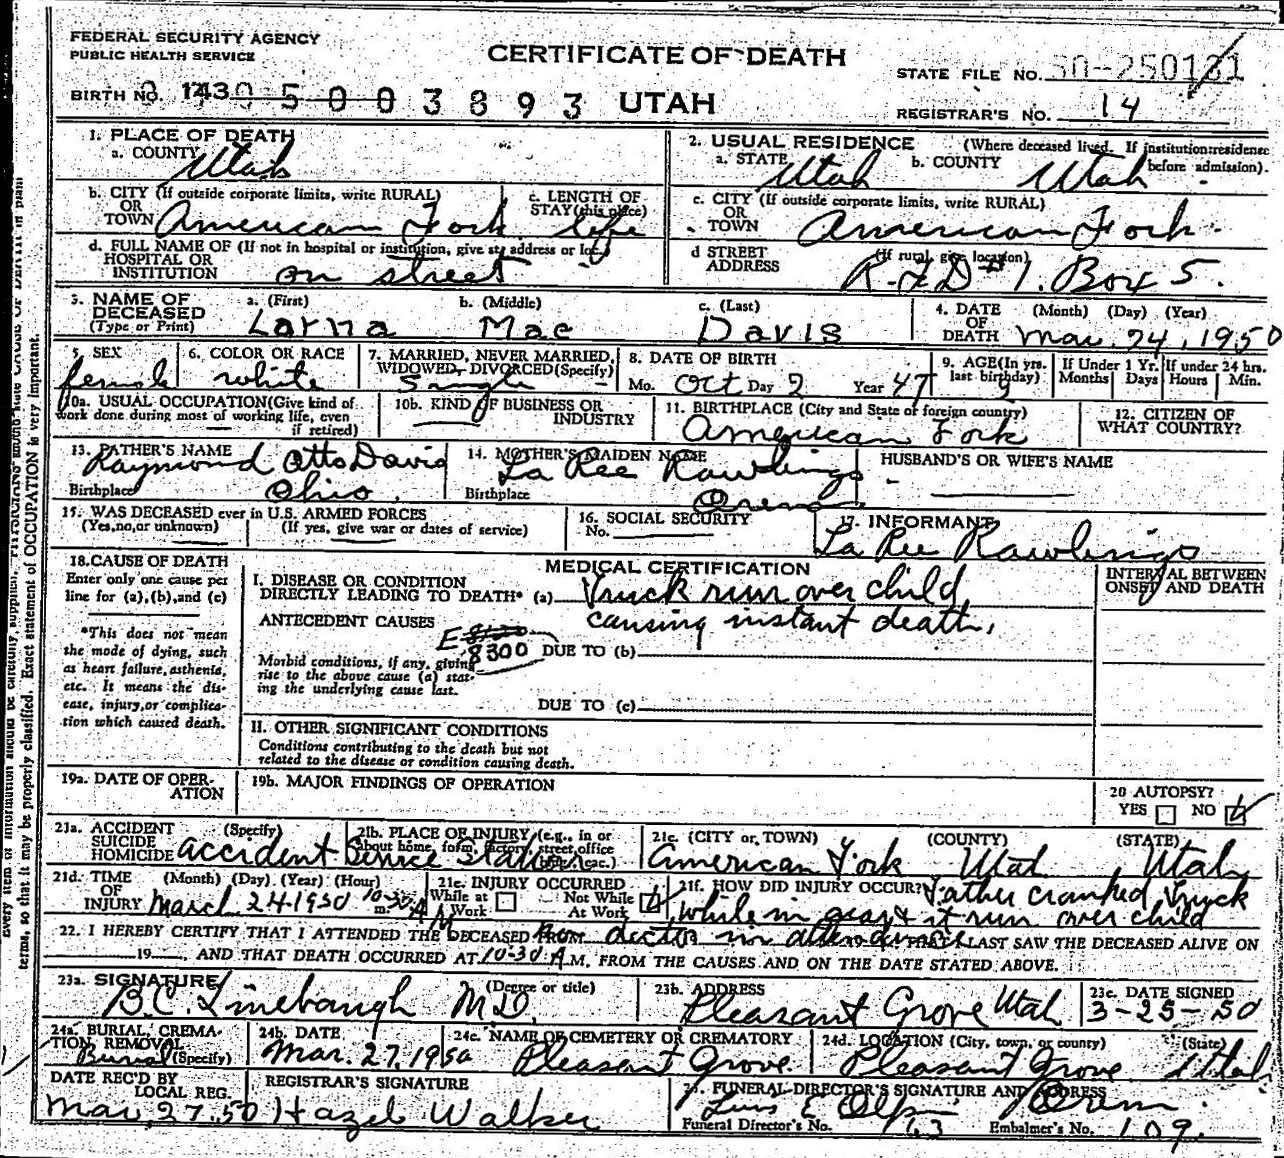 FEDERAL SECURITY AGENCY
PUBLIC HEALTH SERVICE
CERTIFICATE OF DEATH
STATE FILE NO. 50-250131
BIRTH NO. 143 05003893 UTAH
REGISTRAR'S NO. 14
1. PLACE OF DEATH
a. COUNTY Utah
2. USUAL RESIDENCE (Where deceased lived. If institution: residence before admission).
a. STATE Utah b. COUNTY Utah
b. CITY (If outside corporate limits, write RURAL) OR TOWN American Fork
c. LENGTH OF STAY (this place) life
c. CITY (If outside corporate limits, write RURAL) OR TOWN American Fork
d. FULL NAME OF (If not in hospital or institution, give st. address or loc.) HOSPITAL OR INSTITUTION on street
d STREET ADDRESS (If rural, give location) R.F.D #1. Box 5.
3. NAME OF DECEASED (Type or Print)
a. (First) Larna b. (Middle) Mae c. (Last) Davis
4. DATE OF DEATH (Month) (Day) (Year) Mar. 24, 1950
5. SEX female
6. COLOR OR RACE white
7. MARRIED, NEVER MARRIED, WIDOWED, DIVORCED (Specify) Single
8. DATE OF BIRTH Mo. Oct Day 2 Year 47
9. AGE (In yrs. last birthday)
If Under 1 Yr. Months Days If under 24 hrs. Hours Min.
10a. USUAL OCCUPATION (Give kind of work done during most of working life, even if retired)
10b. KIND OF BUSINESS OR INDUSTRY
11. BIRTHPLACE (City and State or foreign country) American Fork
12. CITIZEN OF WHAT COUNTRY?
13. FATHER'S NAME Raymond Otto Davis
Birthplace Ohio.
14. MOTHER'S MAIDEN NAME La Ree Rawlings
Birthplace Orem
HUSBAND'S OR WIFE'S NAME
15. WAS DECEASED ever in U.S. ARMED FORCES
(Yes, no, or unknown) (If yes, give war or dates of service)
16. SOCIAL SECURITY No.
17. INFORMANT La Ree Rawlings
18. CAUSE OF DEATH
Enter only one cause per line for (a), (b), and (c)
*This does not mean the mode of dying, such as heart failure, asthenia, etc. It means the disease, injury, or complication which caused death.
MEDICAL CERTIFICATION
INTERVAL BETWEEN ONSET AND DEATH
I. DISEASE OR CONDITION DIRECTLY LEADING TO DEATH* (a) Truck run over child
causing instant death.
ANTECEDENT CAUSES E 8300
DUE TO (b)
Morbid conditions, if any, giving rise to the above cause (a) stating the underlying cause last.
DUE TO (c)
II. OTHER SIGNIFICANT CONDITIONS
Conditions contributing to the death but not related to the disease or condition causing death.
19a. DATE OF OPERATION
19b. MAJOR FINDINGS OF OPERATION
20 AUTOPSY? YES NO
21a. ACCIDENT SUICIDE HOMICIDE (Specify) accident
21b. PLACE OF INJURY (e.g., in or about home, farm, factory, street, office bldg., eac.) Service Station
21c. (CITY or TOWN) (COUNTY) (STATE) American Fork Utah Utah
21d. TIME OF INJURY (Month) (Day) (Year) (Hour) March 24-1950 10-30 A m.
21e. INJURY OCCURRED While at Work Not While At Work
21f. HOW DID INJURY OCCUR? Father cranked Truck
while in gear & it run over child
22. I HEREBY CERTIFY THAT I ATTENDED THE DECEASED FROM No doctor in attendance THAT I LAST SAW THE DECEASED ALIVE ON
19__, AND THAT DEATH OCCURRED AT 10-30 A.M. FROM THE CAUSES AND ON THE DATE STATED ABOVE.
23a. SIGNATURE (Degree or title) B.C. Linebaugh M.D.
23b. ADDRESS Pleasant Grove Utah
23c. DATE SIGNED 3-25-50
24a. BURIAL, CREMATION, REMOVAL (Specify) Burial
24b. DATE Mar. 27, 1950
24c. NAME OF CEMETERY OR CREMATORY Pleasant Grove
24d. LOCATION (City, town, or county) (State) Pleasant Grove Utah
DATE REC'D BY LOCAL REG. Mar 27, 50
REGISTRAR'S SIGNATURE Hazel Walker
25. FUNERAL DIRECTOR'S SIGNATURE AND ADDRESS Orem.
Funeral Director's No. 163 Embalmer's No. 109.
terms, so that it may be properly classified. Exact statement of OCCUPATION is very important.